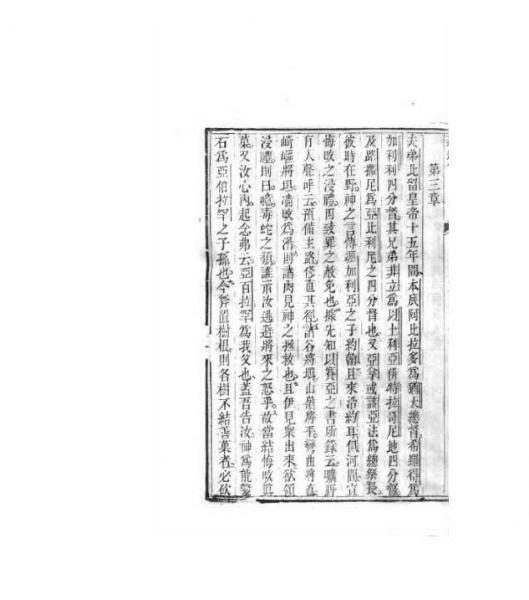 第三章
夫弟比留皇帝十五年間本底阿比拉多爲猶太總督希羅得爲
加利利四分督其兄弟非立爲以土利亞併特拉哥尼地四分督
及路撒尼爲亞比利尼之四分督也又亞拿或該亞法爲總祭長
彼時在野神之言傳遞加利亞之子約翰且來浩約耳但河間宣
悔改之浸禮因致罪之赦免也據先知以賽亞之書所錄云曠野
有人聲呼云預備主路修直其徑諸谷將塡山嶺將平彎曲將直
崎嶇將坦爲滑則諸肉見神之拯救也且伊見衆出來欲領
浸禮則曰噫毒蛇之類誰示汝逃避將來之怒乎故當結悔改
菓又汝心內起念弗云亞百拉罕爲我父也蓋吾告汝神爲能
石爲亞伯拉罕之子孫也今斧置樹根則各樹不結善菓者必砍